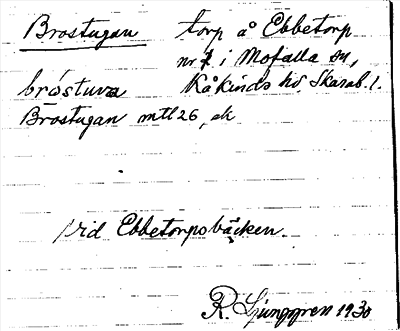 Brostugan torp å Ebbetorp
nr 1 i Mofalla sn,
bróstuva Kåkinds hd Skarab. l.
Brostugan mtl 26, ek
vid Ebbetorpsbäcken.
R. Ljunggren 1930